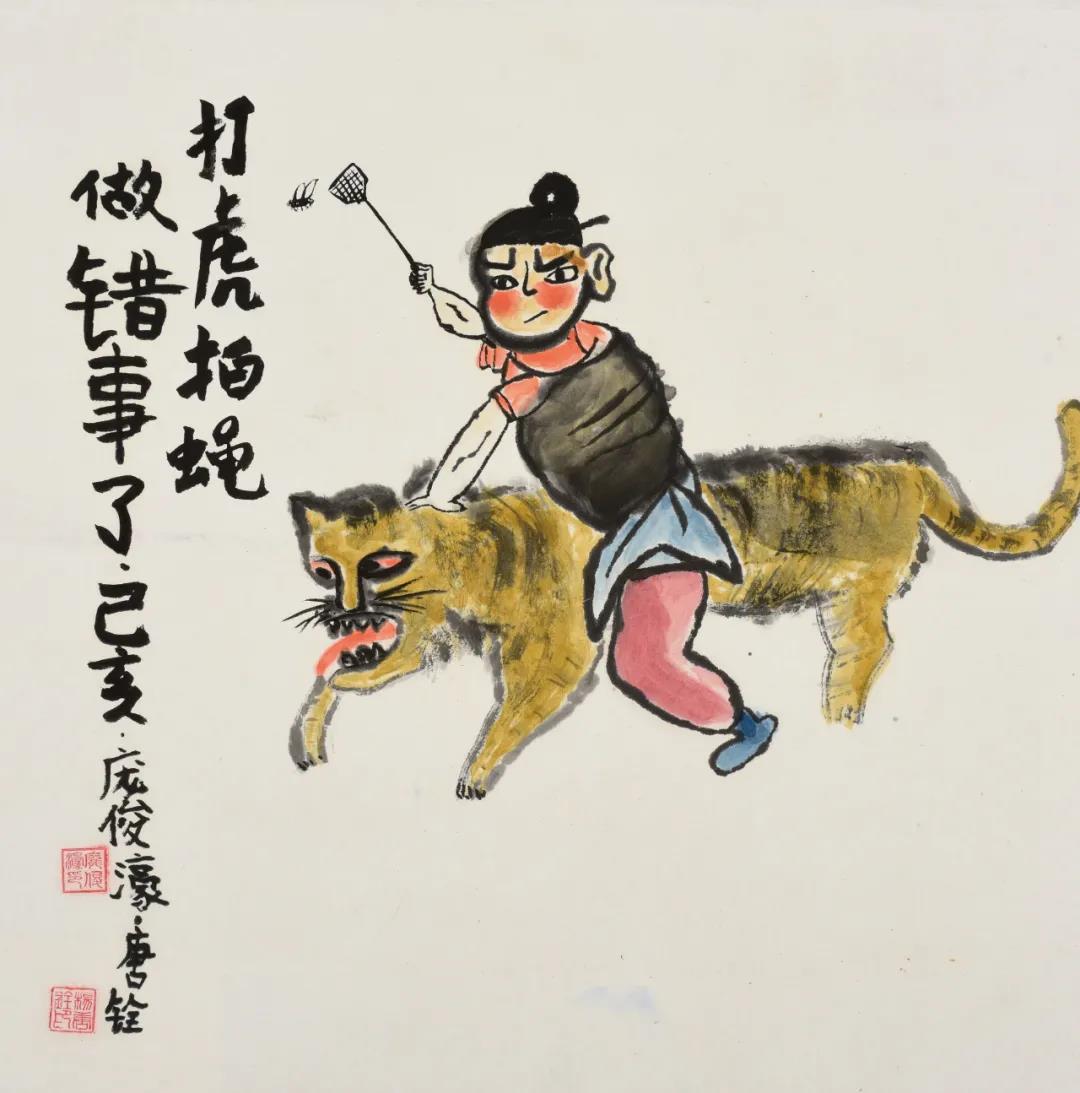 打虎拍蝇
做错事了·己亥·庞俊濠·唐铨